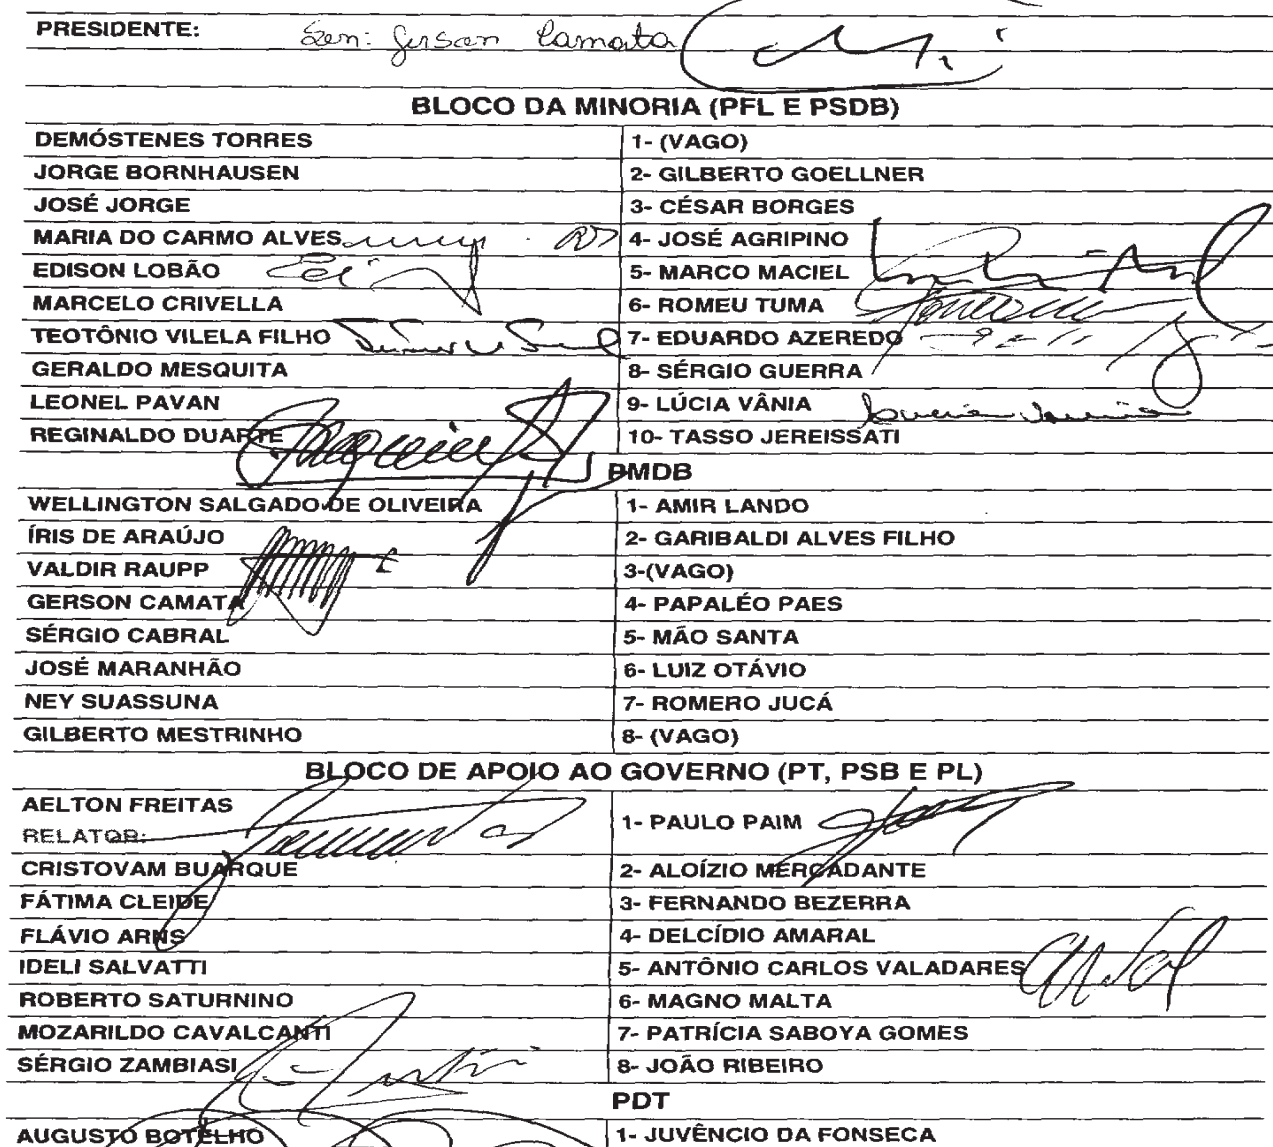 PRESIDENTE: Sen: Gerson Camata
BLOCO DA MINORIA (PFL E PSDB)
DEMÓSTENES TORRES 1- (VAGO)
JORGE BORNHAUSEN 2- GILBERTO GOELLNER
JOSÉ JORGE 3- CÉSAR BORGES
MARIA DO CARMO ALVES 4- JOSÉ AGRIPINO
EDISON LOBÃO 5- MARCO MACIEL
MARCELO CRIVELLA 6- ROMEU TUMA
TEOTÔNIO VILELA FILHO 7- EDUARDO AZEREDO
GERALDO MESQUITA 8- SÉRGIO GUERRA
LEONEL PAVAN 9- LÚCIA VÂNIA
REGINALDO DUARTE 10- TASSO JEREISSATI
PMDB
WELLINGTON SALGADO DE OLIVEIRA 1- AMIR LANDO
ÍRIS DE ARAÚJO 2- GARIBALDI ALVES FILHO
VALDIR RAUPP 3-(VAGO)
GERSON CAMATA 4- PAPALÉO PAES
SÉRGIO CABRAL 5- MÃO SANTA
JOSÉ MARANHÃO 6- LUIZ OTÁVIO
NEY SUASSUNA 7- ROMERO JUCÁ
GILBERTO MESTRINHO 8- (VAGO)
BLOCO DE APOIO AO GOVERNO (PT, PSB E PL)
AELTON FREITAS
RELATOR: 1- PAULO PAIM
CRISTOVAM BUARQUE 2- ALOÍZIO MERCADANTE
FÁTIMA CLEIDE 3- FERNANDO BEZERRA
FLÁVIO ARNS 4- DELCÍDIO AMARAL
IDELI SALVATTI 5- ANTÔNIO CARLOS VALADARES
ROBERTO SATURNINO 6- MAGNO MALTA
MOZARILDO CAVALCANTI 7- PATRÍCIA SABOYA GOMES
SÉRGIO ZAMBIASI 8- JOÃO RIBEIRO
PDT
AUGUSTO BOTELHO 1- JUVÊNCIO DA FONSECA